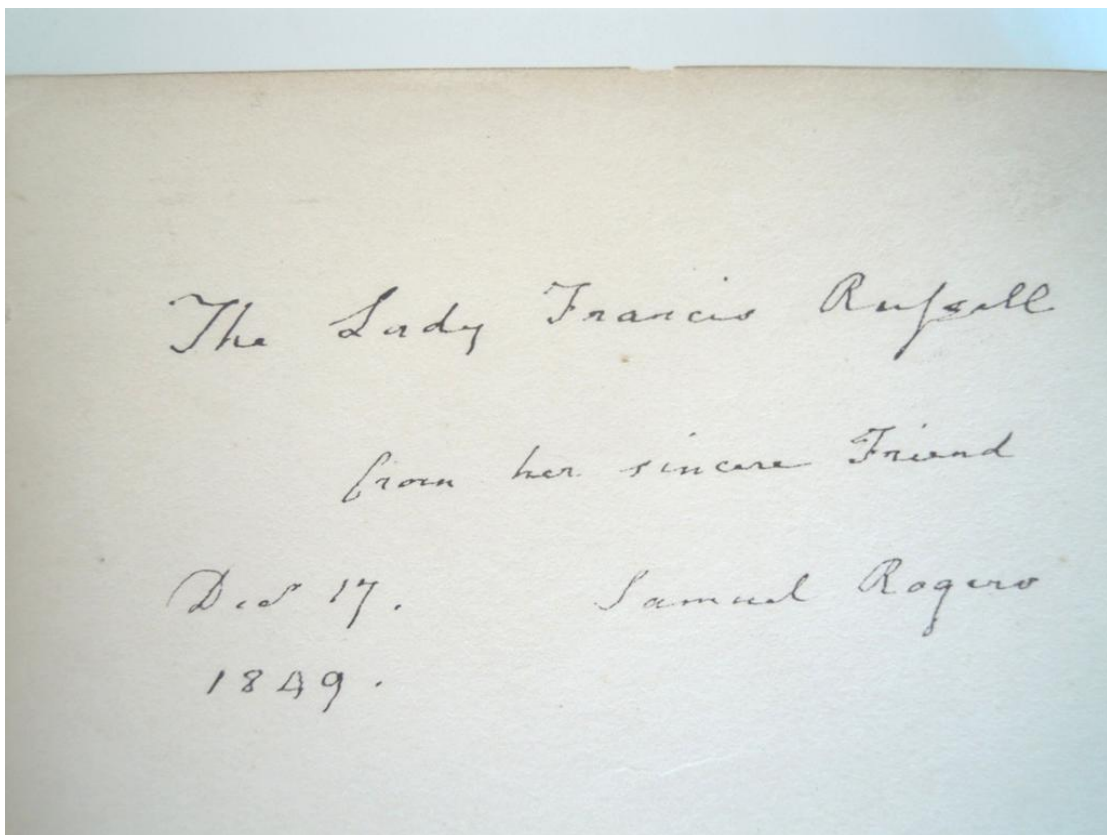 The Lady Francis Russell
from her sincere Friend
Decr 17. Samuel Rogers
1849.